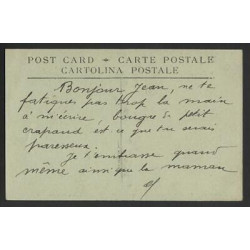 POST CARD - CARTE POSTALE
CARTOLINA POSTALE
Bonjour Jean, ne te
fatigues pas trop la main
à m'écrire, bougre de petit
crapaud est ce que tu serais
paresseux.
je t'embrasse quand
même ainsi que ta maman